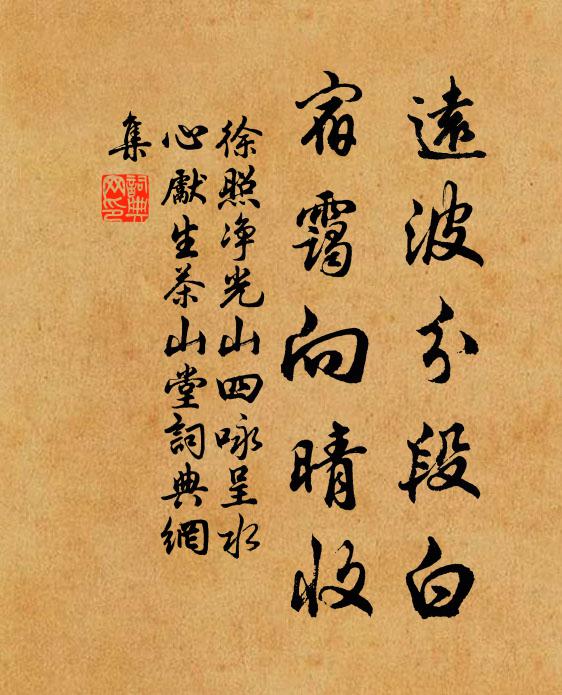 遠波分段白
宿靄向晴收
徐照净光山四咏呈水
心獻生茶山堂詞典網
集
詞典網印